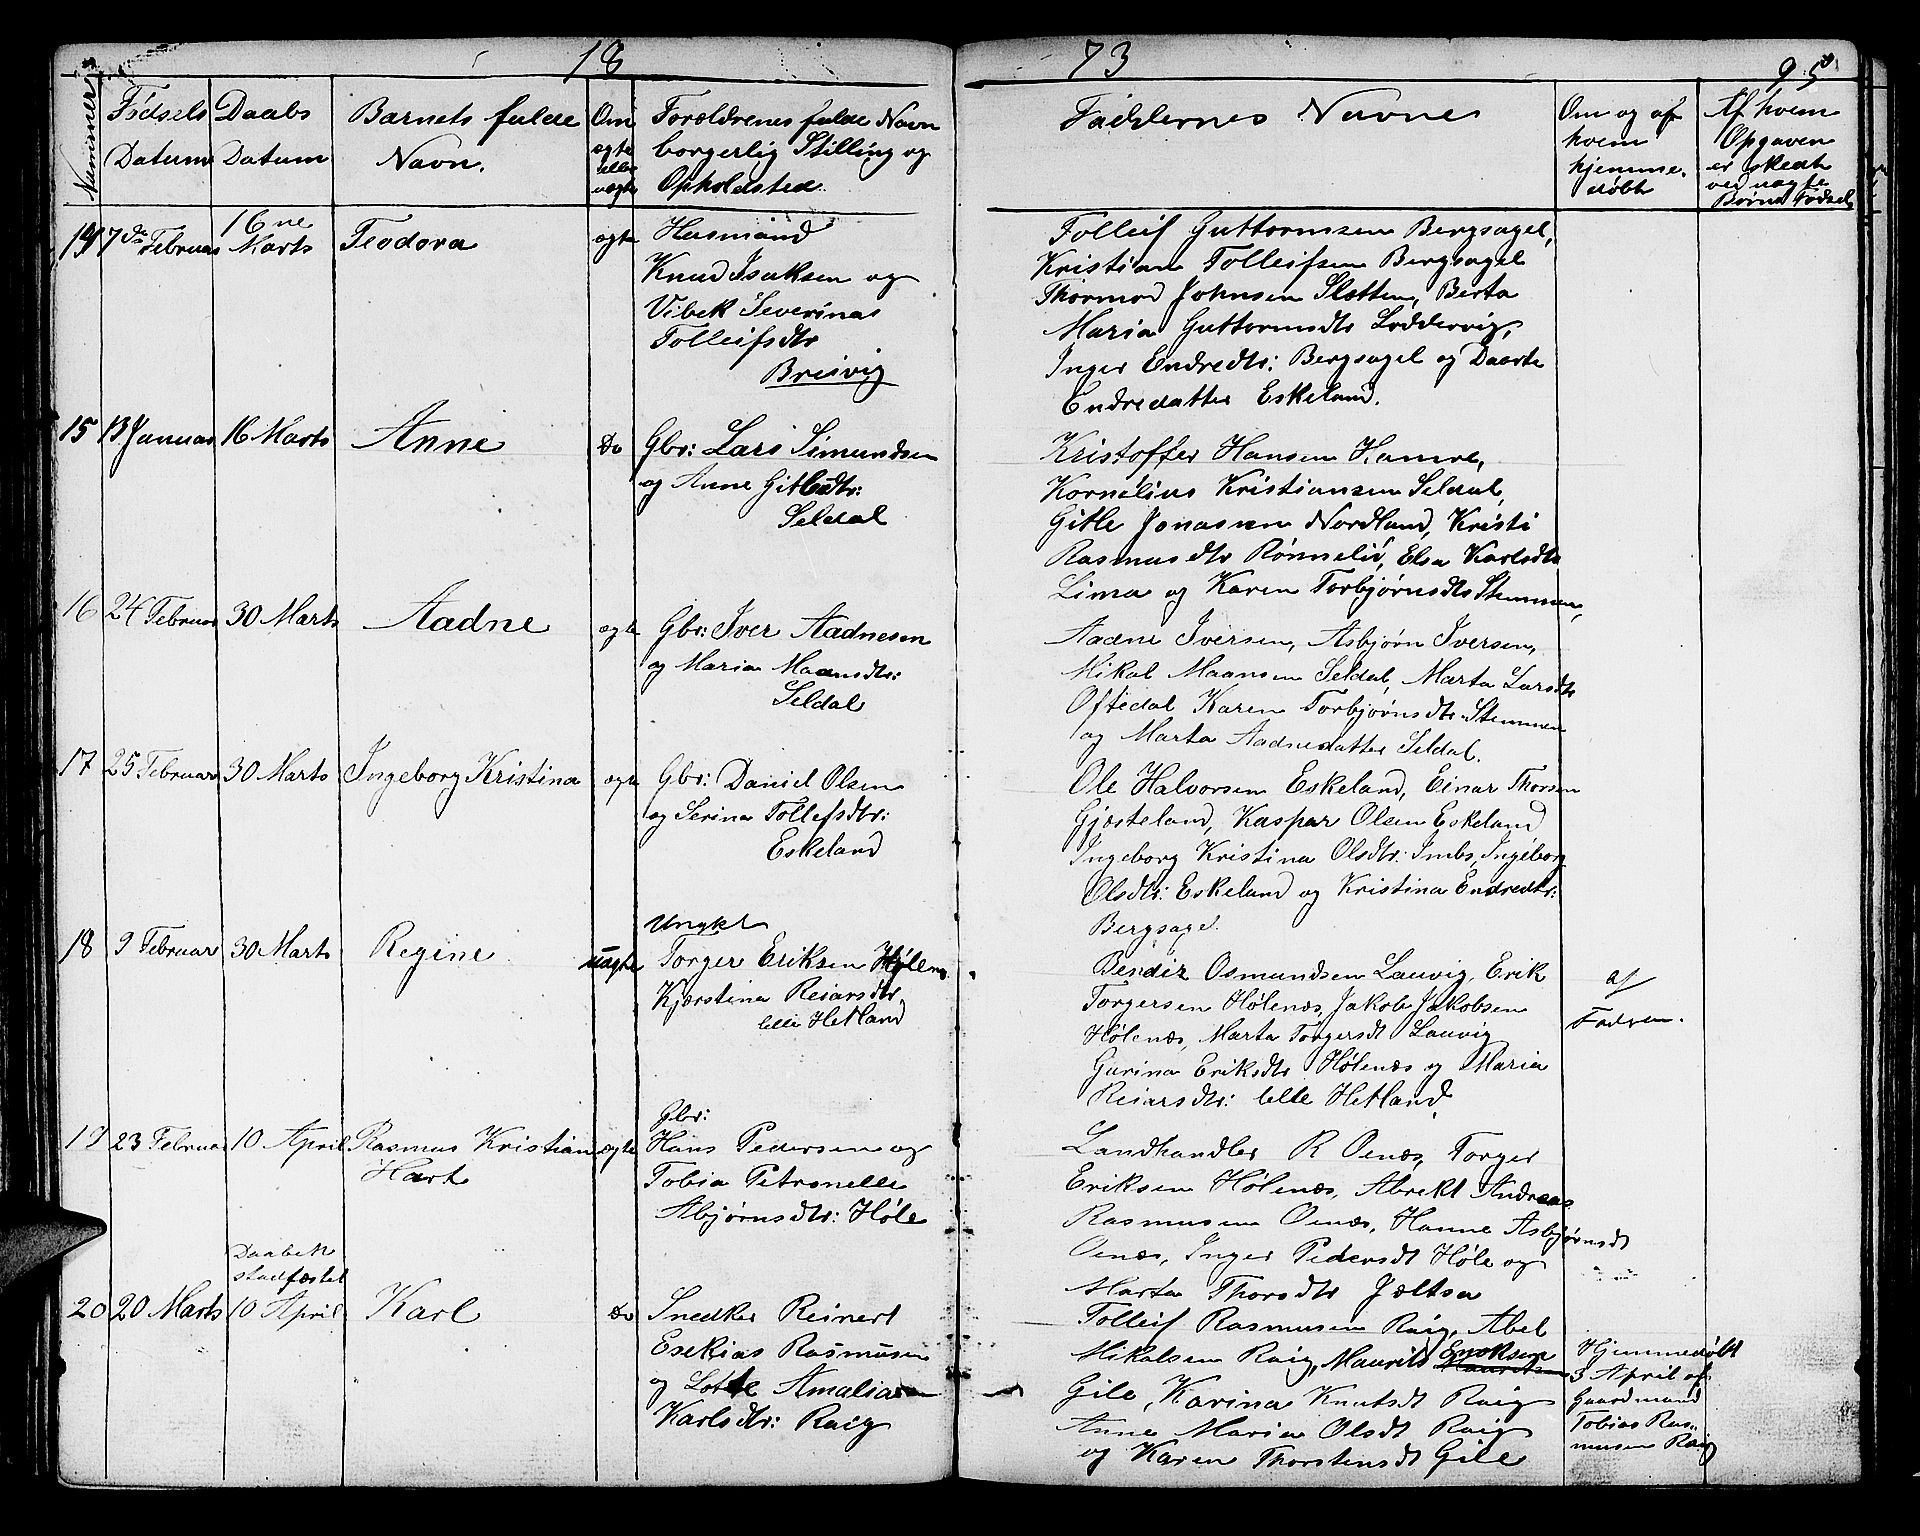 18 73 95
Nummer
Fødsels Datum
Daabs Datum
Barnets fulde Navn.
Om ægte eller uægte
Forældrenes fulde Navn borgerlig Stilling og Opholdsted.
Faddernes Navne
Om og af hvem hjemme- døbt
Af hvem Opgaven er skedt ved uægte Børns Fødsel
14 7de Februar 16ne Marts Teodora ægte
Husmand
Knud Isaksen og
Vibek Severinas
Tolleifsdtr
Breivig
Tolleif Guttormsen Bergsagel,
Kristian Tolleifsen Bergsagel
Thormod Johnsen Slætten, Berta
Maria Guttormsdtr Loddervig,
Inger Endredtr: Bergsagel og Daarte
Endredatter Eskeland.
15 13 Januar 16 Marts Anne Do
Gbr: Lars Simundsen
og Anne Gitlesdtr:
Seldal
Kristoffer Hansen Hamre,
Kornelius Kristiansen Seldal,
Gitle Jonassen Nordland, Kristi
Rasmusdtr Rønneli, Elsa Karlsdtr
Lima og Karen Torbjørnsdtr Stemmen,
16 24 Februar 30 Marts Aadne ægte
Gbr: Iver Aadnesen
og Maria Maansdtr:
Seldal
Aadne Iversen, Asbjørn Iversen,
Mikal Maansen Seldal, Marta Larsdtr
Oftedal Karen Torbjørnsdtr. Stemmen
og Marta Aadnedatter Seldal.
17 25 Februar 30 Marts Ingeborg Kristina ægte
Gbr: Daniel Olsen
og Serina Tollefsdtr:
Eskeland
Ole Halvorsen Eskeland, Einar Thorsen
Gjæsteland, Kaspar Olsen Eskeland
Ingeborg Kristina Olsdtr: Imbs, Ingeborg
Olsdtr: Eskeland og Kristina Endredtr:
Bergsagel.
18 9 Februar 30 Marts Regine uægte
Ungkl
Torger Eriksen Hølenæs
Kjerstina Reiarsdtr,
lille Hetland
Bendix Osmundsen Lauvig, Erik
Torgersen Hølenæs, Jakob Jakobsen
Hølenæs, Marta Torgersdt Lauvig
Gurina Eriksdtr Hølenæs og Maria
Reiarsdtr: lille Hetland,
af
Fadren.
19 23 Februar 10 April Rasmus Kristian ægte
Hart
Gbr:
Hans Pedersen og
Tobia Petronelle
Abjørnsdtr: Høle
Landhandler R Oenæs, Torger
Eriksen Hølenæs, Abrekt Andreas
Rasmusen Oenæs, Hanne Asbjørnsdt
Oenæs, Inger Pedersdt Høle og
Marta Thorsdtr Jæltsa
Daaben
stadfæstet
20 20 Marts 10 April Karl Do
Snedker Reinert
Esekias Rasmusen
og Lotte Amalia
Karlsdtr: Raig
Tolleif Rasmusen Raig, Abel
Mikalsen Raig, Maurits Enoksen
Gile, Karina Knutsdt Raig
Anne Maria Olsdt Raig
og Karen Thorstensdt Gile
Hjemmedøbt
3 April af
Gaardmand
Tobias Ras-
musen Raig